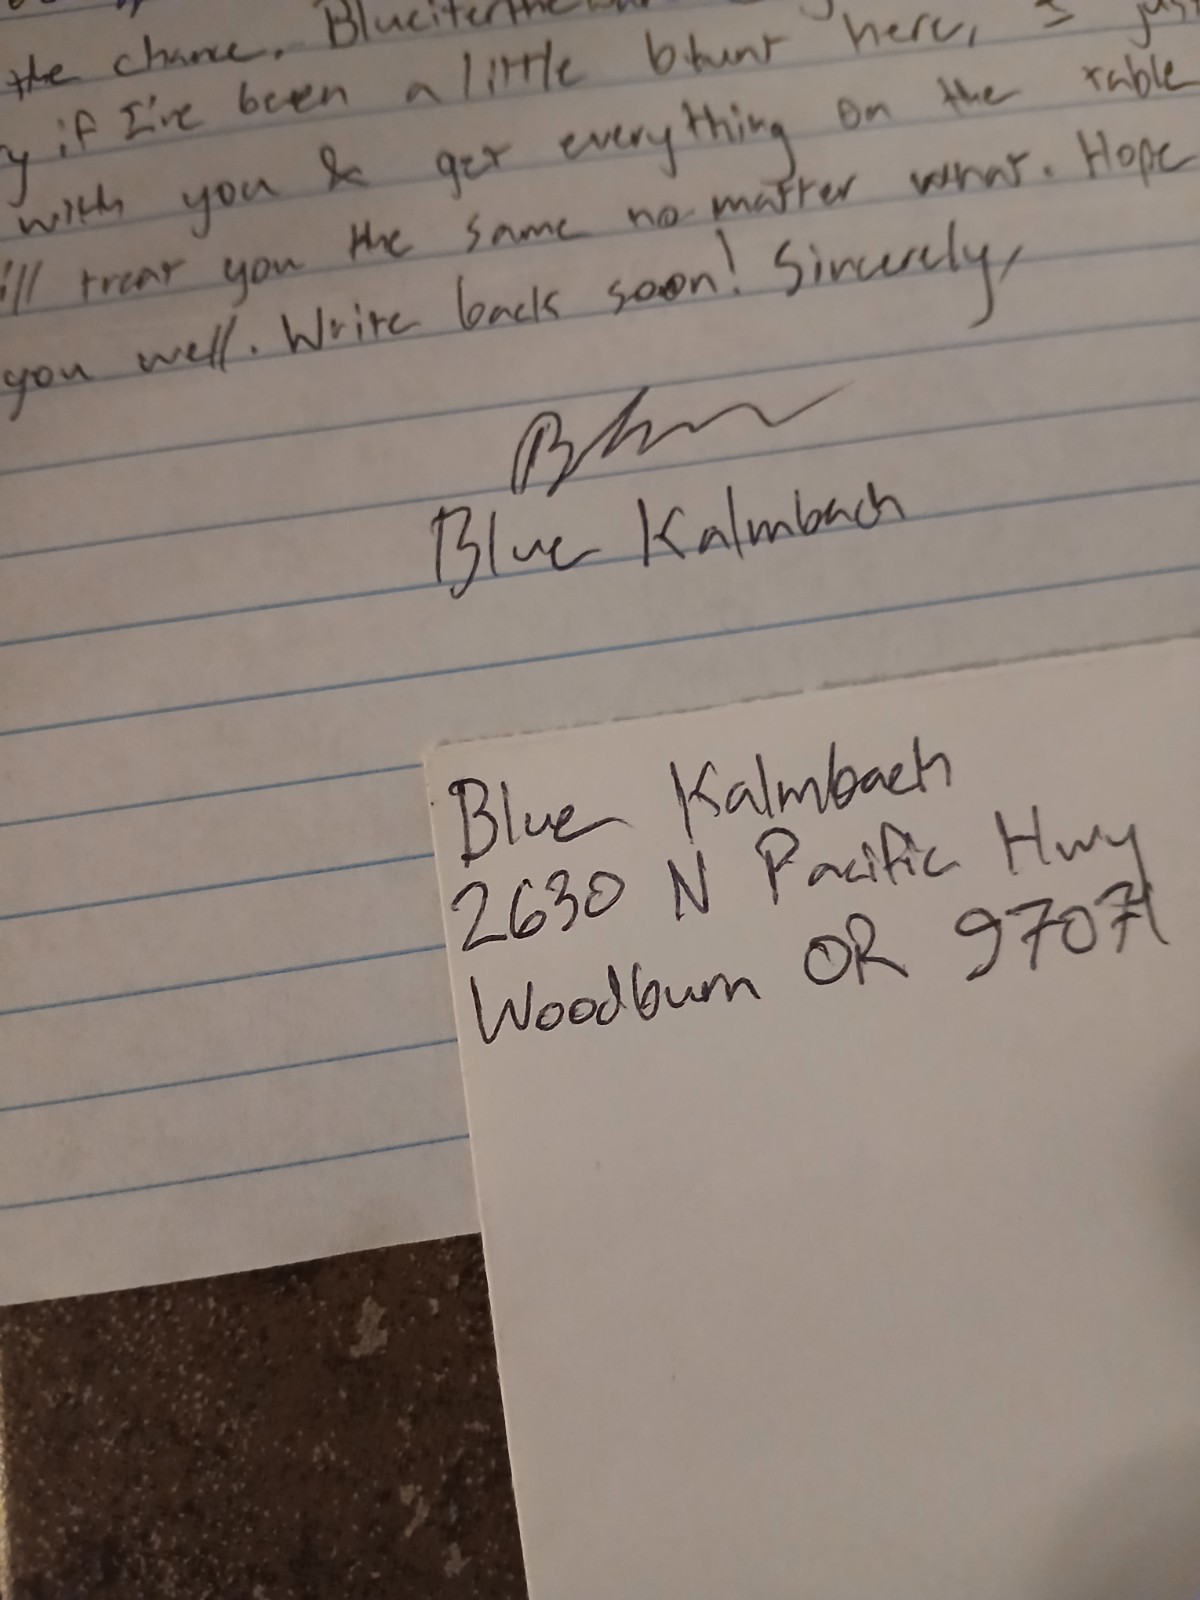 the chance.
y if I've been a little blunt here, I just
with you & get everything on the table
ill treat you the same no matter what. Hope
you well. Write back soon! Sincerely,
Blue Kalmbach
Blue Kalmbach
2630 N Pacific Hwy
Woodburn OR 97071